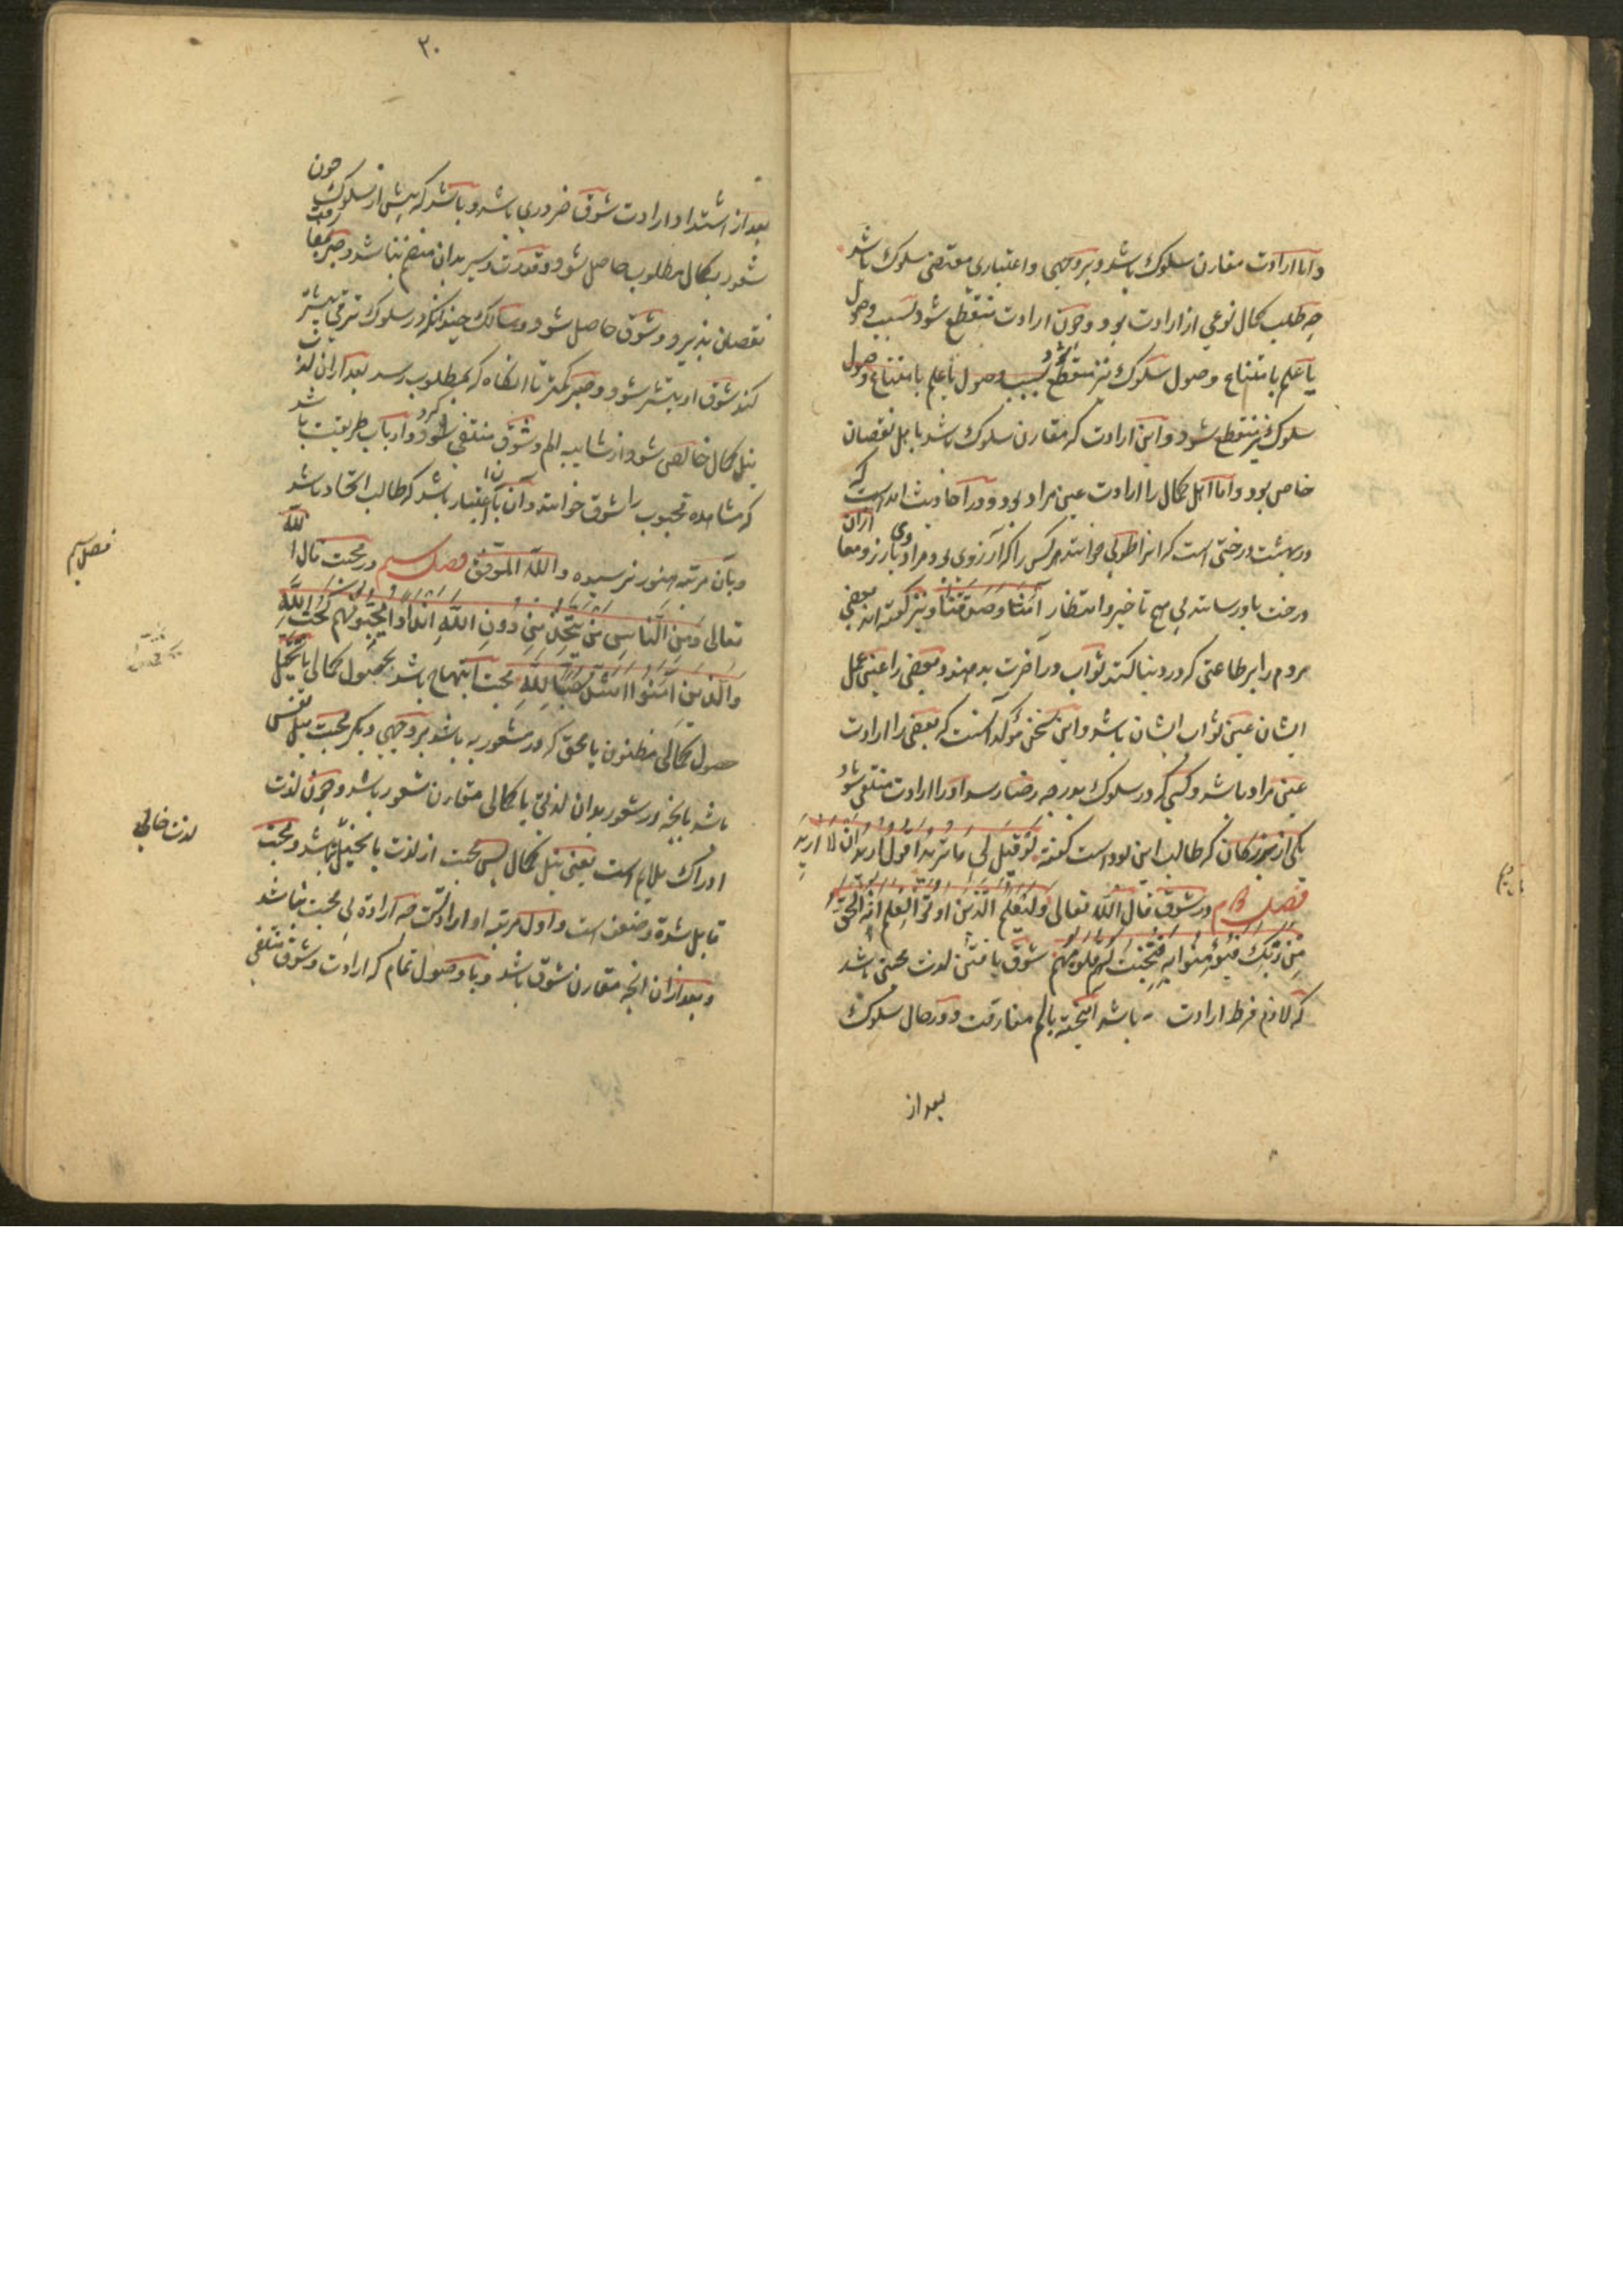 واما ارادت مقارن سلوک باشد و بر وجهی و اعتباری مقتضی سلوک باشد
چه طلب کمال نوعی از ارادت بود و چون ارادت منقطع شود بسبب وصول
یا علم بامتناع وصول سلوک نیز منقطع شود بسبب وصول یا علم بامتناع وصول
سلوک نیز منقطع شود و این ارادت که مقارن سلوک باشد باهل نقصان
خاص بود و اما اهل کمال را ارادت عین مراد بود و در احادیث امده است که
در بهشت درختی است که انرا طوبی خوانند هر کس را که آرزوی بود مراد وی ازان
درخت باو رسانند بی هیچ تاخیر و انتظار آمنا و صدقنا و نیز گفته اند بعضی
مردم را بر طاعتی که در دنیا کنند ثواب در آخرت بدهند و بعضی را عین عمل
ایشان عین ثواب ایشان باشد و این سخن مؤکد آنست که بعضی را ارادت
عین مراد باشد و کسی که در سلوک بدرجه رضا رسد او را ارادت منتفی شود
یکی از بزرگان که طالب این بود است گفته لو قیل لی ما ترید اقول ارید ان لا ارید
فصل در شوق قال الله تعالی ولیعلم الذین اوتوا العلم انه الحق
من ربک فیؤمنوا به فتخبت له قلوبهم شوق یافتن لذت محبتی باشد
که لازم فرط ارادت باشد آمیخته بالم مفارقت و در حال سلوک
بعد از
۳۰
بعد از اشتداد ارادت شوق ضروری باشد و باشد که پیش از سلوک چون
شعور بکمال مطلوب حاصل شود و قدرت سیر بدان منضم نباشد و صبر بر مفارقت
نقصان پذیرد و شوق حاصل شود و سالک چندانکه در سلوک ترقی بیشتر
کند شوق او بیشتر شود و صبر کمتر تا انگاه که بمطلوب رسد بعد ازان لذت
نیل کمال خالص شود از شایبه الم و شوق منتفی گردد و ارباب طریقت باشد
که مشاهده محبوب را شوق خوانند و آن باعتبار ان باشد که طالب اتحاد باشد
و بان مرتبه هنوز نرسیده والله الموفق فصل سیم در محبت قال الله
تعالی ومن الناس من یتخذ من دون الله اندادا یحبونهم کحب الله
والذین آمنوا اشد حبا لله محبت ابتهاج باشد بحصول کمالی یا تخیل
حصول کمالی مظنون یا محقق که در مشعور به باشد و بر وجهی دیگر محبت میل نفس
باشد بانچه در شعور بدان لذتی یا کمالی مقارن شعور باشد و چون لذت
ادراک ملایم است یعنی نیل کمال پس محبت از لذت یا تخیل لذت باشد و محبت
قابل شدة و ضعف است و اول مرتبه او ارادتست چه ارادة بی محبت نباشد
و بعد ازان انچه مقارن شوق باشد و با وصول تمام که ارادت و شوق منتفی
فصل سیم
لذت خالی